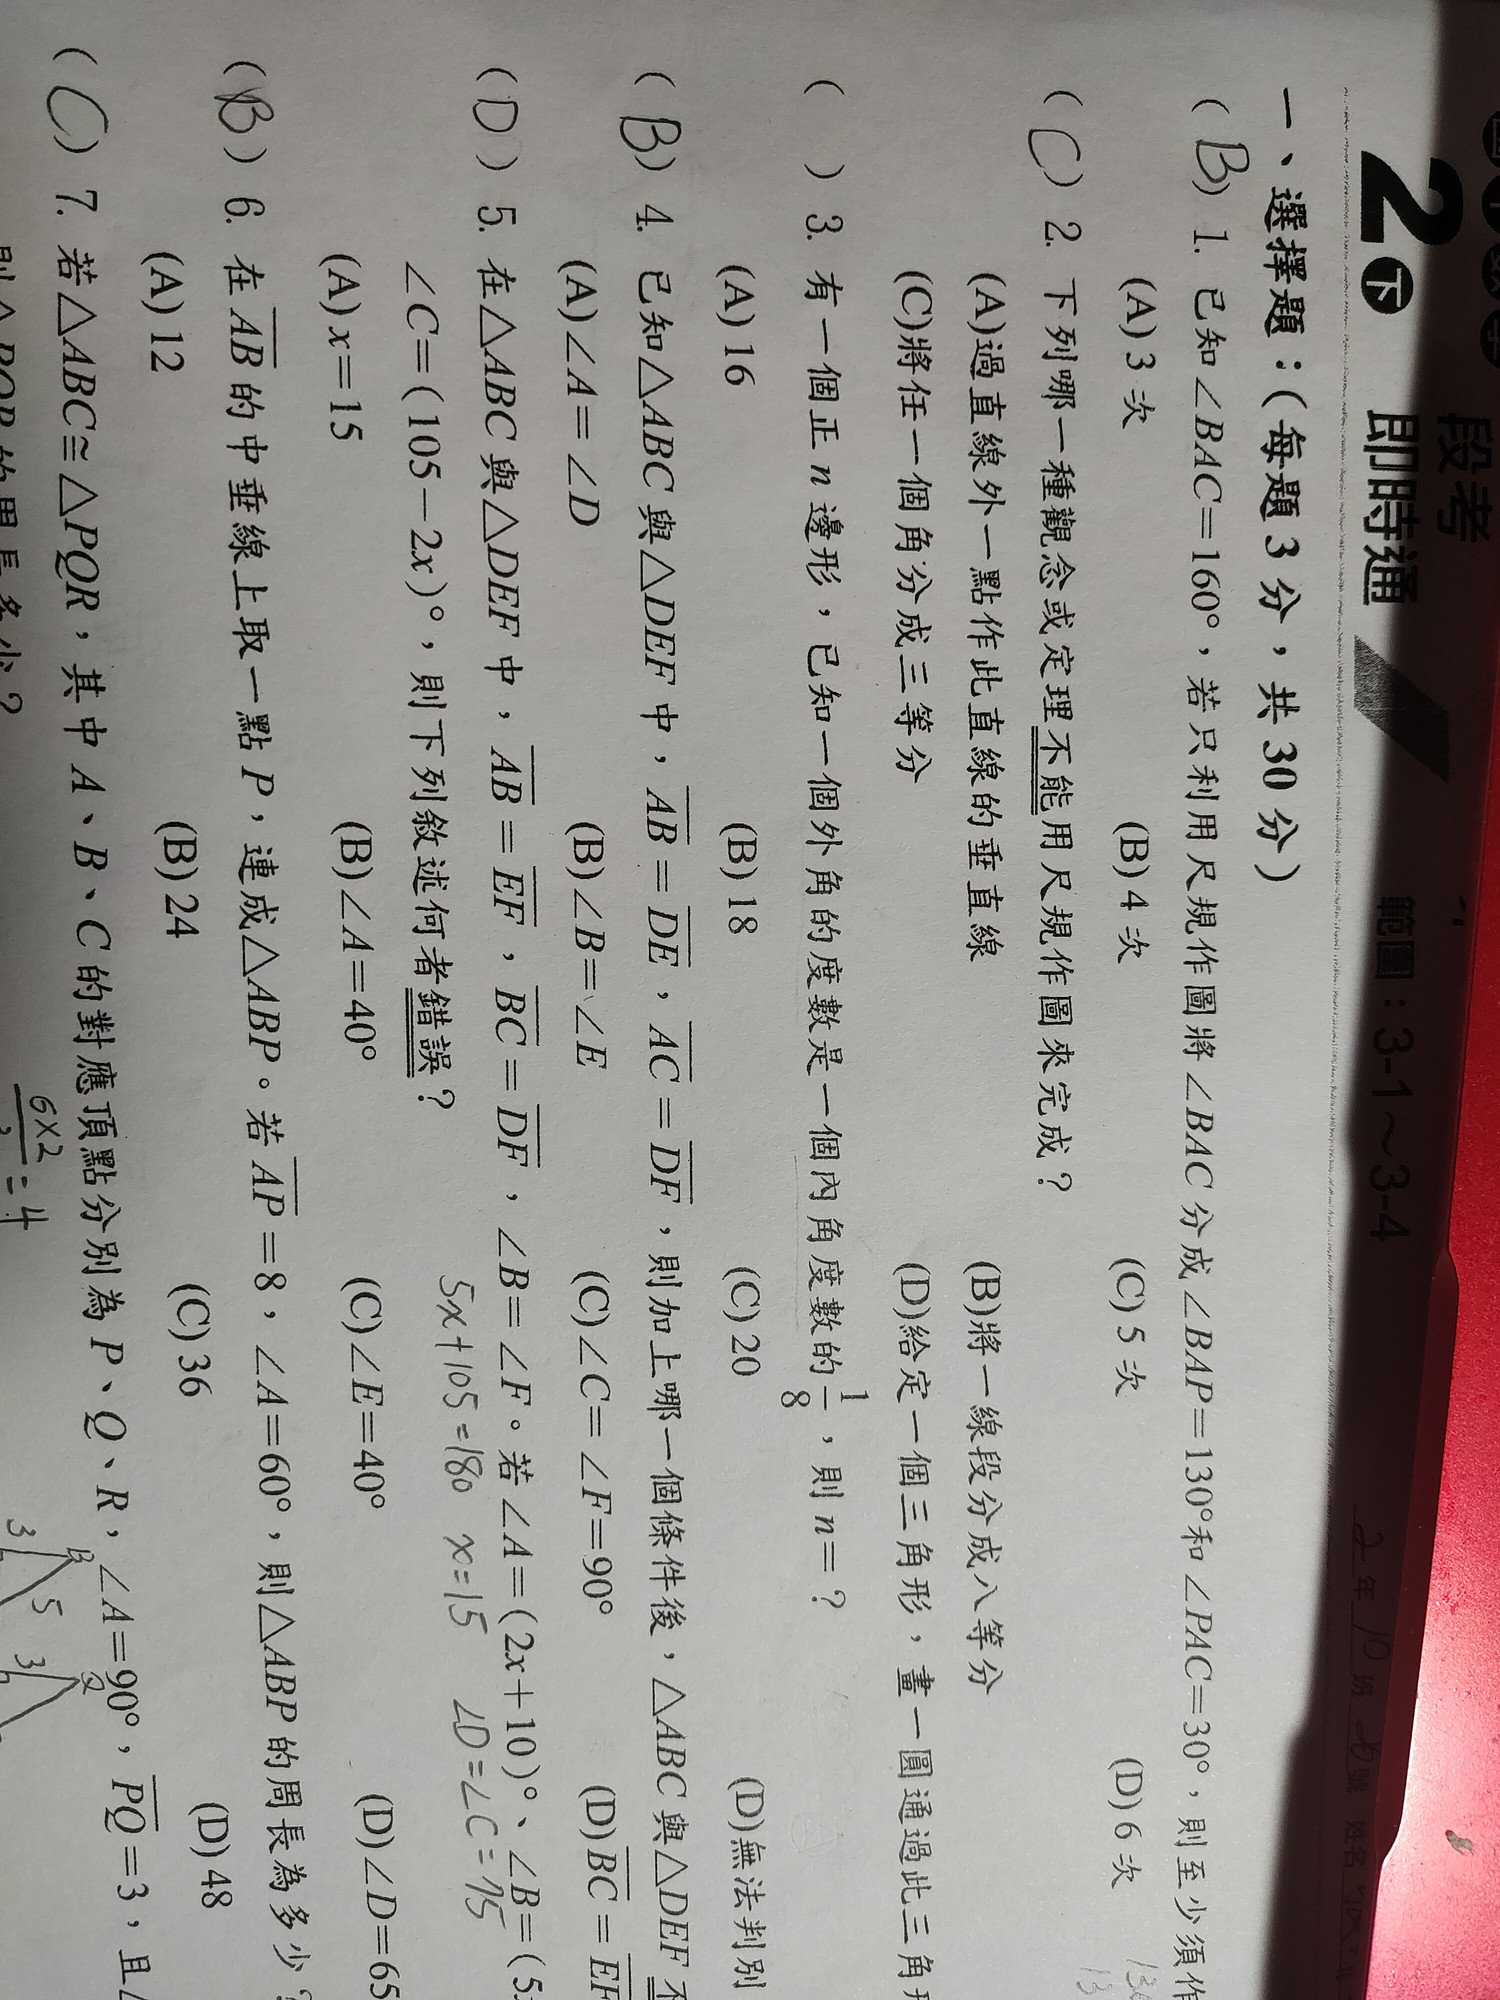 2下 段考即時通 範圍：3-1～3-4 2年10班 號 姓名
一、選擇題：(每題3分，共30分)
(B) 1. 已知∠BAC＝160°，若只利用尺規作圖將∠BAC分成∠BAP＝130°和∠PAC＝30°，則至少須作
(A) 3 次 (B) 4 次 (C) 5 次 (D) 6 次
(C) 2. 下列哪一種觀念或定理不能用尺規作圖來完成？
(A)過直線外一點作此直線的垂直線 (B)將一線段分成八等分
(C)將任一個角分成三等分 (D)給定一個三角形，畫一圓通過此三角形
( ) 3. 有一個正n邊形，已知一個外角的度數是一個內角度數的1/8，則n＝？
(A) 16 (B) 18 (C) 20 (D)無法判別
(B) 4. 已知△ABC與△DEF中，AB＝DE，AC＝DF，則加上哪一個條件後，△ABC與△DEF不
(A)∠A＝∠D (B)∠B＝∠E (C)∠C＝∠F＝90° (D)BC＝EF
(D) 5. 在△ABC與△DEF中，AB＝EF，BC＝DF，∠B＝∠F。若∠A＝(2x＋10)°、∠B＝(5
∠C＝(105－2x)°，則下列敘述何者錯誤？ 5x+105=180 x=15 ∠D=∠C=75
(A) x＝15 (B)∠A＝40° (C)∠E＝40° (D)∠D＝65
(B) 6. 在AB的中垂線上取一點P，連成△ABP。若AP＝8，∠A＝60°，則△ABP的周長為多少？
(A) 12 (B) 24 (C) 36 (D) 48
(C) 7. 若△ABC≅△PQR，其中A、B、C的對應頂點分別為P、Q、R，∠A＝90°，PQ＝3，且
則△PQR的周長多少？
6×2
=4
B
3
5
Q
3